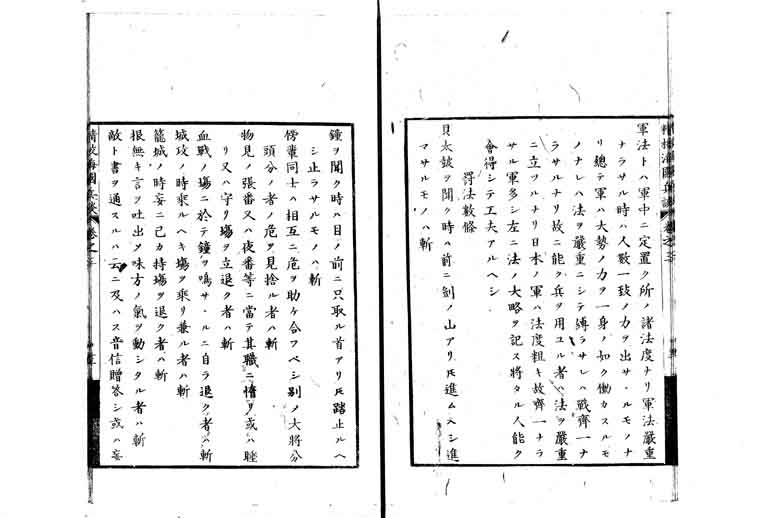 軍法トハ軍中ニ定置ク所ノ諸法度ナリ軍法嚴重
ナラサル時ハ人數一致ノ力ヲ出サヽルモノナ
リ總テ軍ハ大勢ノ力ヲ一身ノ如ク働カスルモ
ノナレハ法ヲ嚴重ニシテ縛ラサレハ戰齊一ナ
ラサルナリ故ニ能ク兵ヲ用ユル者ハ法ヲ嚴重
ニ立ツルナリ日本ノ軍ハ法度粗キ故齊一ナラ
サル軍多シ左ニ法ノ大略ヲ記ス將タル人能ク
會得シテ工夫アルヘシ
罰法數條
貝太皷ヲ聞ク時ハ前ニ劍ノ山アリ𪜈進ムヘシ進
マサルモノハ斬
鐘ヲ聞ク時ハ目ノ前ニ只取ル首アリ𪜈踏止ルヘ
シ止ラサルモノハ斬
傍軰同士ハ相互ニ危ヲ助ケ合フベシ別ノ大將分
頭分ノ者ノ危ヲ見捨ル者ハ斬
物見ノ張番又ハ夜番等ニ當テ其職ニ惰リ或ハ睡
リ又ハ守リ場ヲ立退ク者ハ斬
血戰ノ場ニ於テ鐘ヲ鳴サヽルニ自ラ退ク者ハ斬
城攻ノ時乘ルヘキ場ヲ乘リ兼ル者ハ斬
籠城ノ時妄ニ己カ持場ヲ退ク者ハ斬
根無キ言ヲ吐出ヲ味方ノ氣ヲ動シタル者ハ斬
敵ト書ヲ通スルハ云ニ及ハス音信贈答シ或ハ妄
精校海國兵談 卷之三